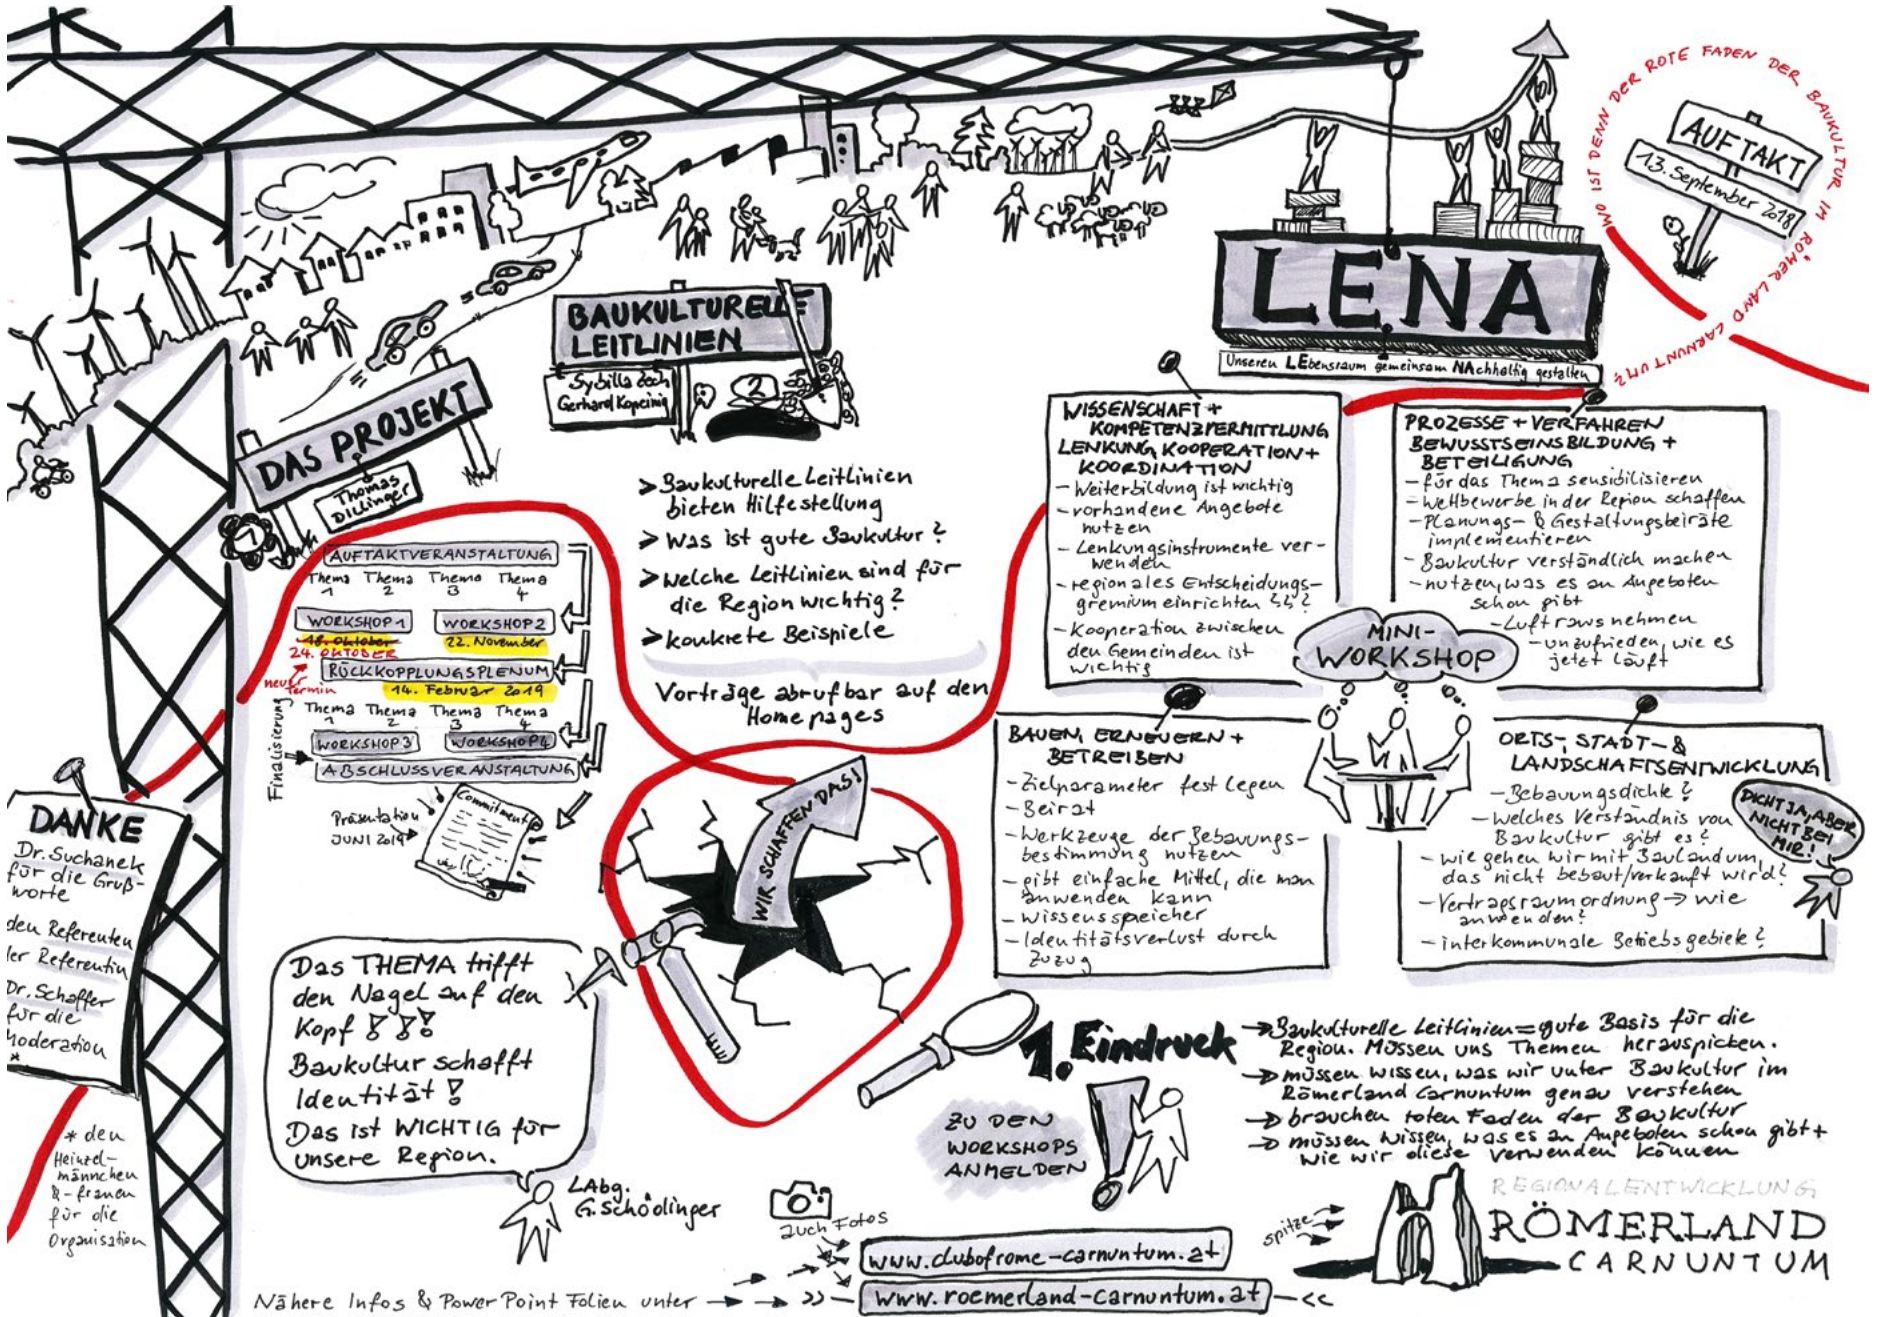 WO IST DENN DER ROTE FADEN DER BAUKULTUR IM RÖMERLAND CARNUNTUM?
AUFTAKT
13. September 2018
LENA
Unseren LEbensraum gemeinsam NAchhaltig gestalten
DAS PROJEKT
Thomas
Dillinger
1
AUFTAKTVERANSTALTUNG
Thema Thema Thema Thema
1 2 3 4
WORKSHOP 1 WORKSHOP 2
18. Oktober 22. November
24. OKTOBER
neuer
Termin
RÜCKKOPPLUNGSPLENUM
14. Februar 2019
Finalisierung
Thema Thema Thema Thema
1 2 3 4
WORKSHOP 3 WORKSHOP 4
ABSCHLUSSVERANSTALTUNG
Präsentation
JUNI 2019
Commitment
BAUKULTURELLE
LEITLINIEN
Sybilla Zech
Gerhard Kopeinig
2
> Baukulturelle Leitlinien
bieten Hilfestellung
> Was ist gute Baukultur?
> Welche Leitlinien sind für
die Region wichtig?
> konkrete Beispiele
Vorträge abrufbar auf den
Homepages
WISSENSCHAFT +
KOMPETENZVERMITTLUNG
LENKUNG, KOOPERATION +
KOORDINATION
- Weiterbildung ist wichtig
- vorhandene Angebote
nutzen
- Lenkungsinstrumente ver-
wenden
- regionales Entscheidungs-
gremium einrichten ???
- Kooperation zwischen
den Gemeinden ist
wichtig
PROZESSE + VERFAHREN
BEWUSSTSEINSBILDUNG +
BETEILIGUNG
- für das Thema sensibilisieren
- Wettbewerbe in der Region schaffen
- Planungs- & Gestaltungsbeiräte
implementieren
- Baukultur verständlich machen
- nutzen, was es an Angeboten
schon gibt
- Luft raus nehmen
- unzufrieden, wie es
jetzt läuft
MINI-
WORKSHOP
BAUEN, ERNEUERN +
BETREIBEN
- Zielparameter fest legen
- Beirat
- Werkzeuge der Bebauungs-
bestimmung nutzen
- gibt einfache Mittel, die man
anwenden kann
- Wissensspeicher
- Identitätsverlust durch
Zuzug
ORTS-, STADT- &
LANDSCHAFTSENTWICKLUNG
- Bebauungsdichte?
- welches Verständnis von
Baukultur gibt es?
- wie gehen wir mit Bauland um,
das nicht bebaut/verkauft wird?
- Vertragsraumordnung → wie
anwenden?
- interkommunale Betriebsgebiete?
DICHT JA, ABER
NICHT BEI
MIR!
WIR SCHAFFEN DAS!
DANKE
Dr. Suchanek
für die Gruß-
worte
den Referenten
der Referentin
Dr. Schaffer
für die
Moderation
*
* den
Heinzel-
männchen
& -frauen
für die
Organisation
Das THEMA trifft
den Nagel auf den
Kopf !!!
Baukultur schafft
Identität!
Das ist WICHTIG für
unsere Region.
LAbg.
G. Schödinger
1. Eindruck
→ Baukulturelle Leitlinien = gute Basis für die
Region. Müssen uns Themen herauspicken.
→ müssen wissen, was wir unter Baukultur im
Römerland Carnuntum genau verstehen
→ brauchen roten Faden der Baukultur
→ müssen wissen, was es an Angeboten schon gibt +
wie wir diese verwenden können
ZU DEN
WORKSHOPS
ANMELDEN
auch Fotos
www.clubofrome-carnuntum.at
Nähere Infos & PowerPoint Folien unter → → >> www.roemerland-carnuntum.at <<
spitze
REGIONALENTWICKLUNG
RÖMERLAND
CARNUNTUM